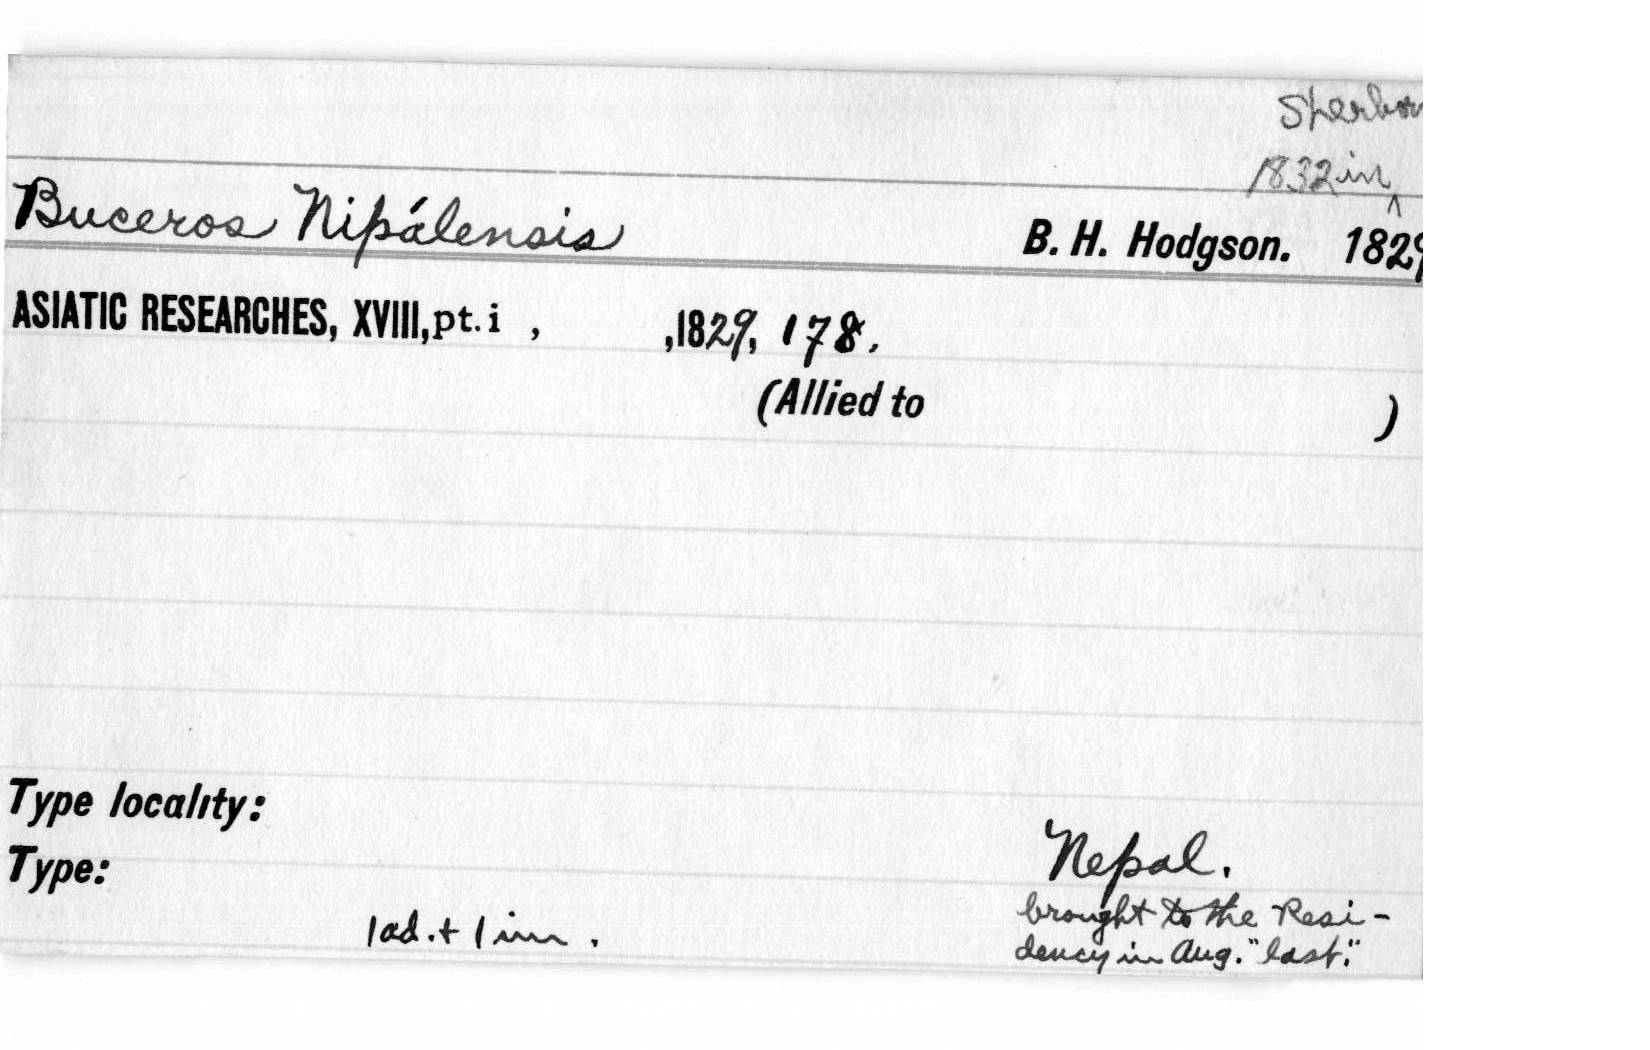 Sherbor
1832 in
^
Buceros Nipálensis B. H. Hodgson. 1829
ASIATIC RESEARCHES, XVIII, pt. i , ,1829, 178.
(Allied to )
Type locality:
Nepal.
Type:
brought to the Resi-
1 ad. + 1 im .
dency in Aug. "last."